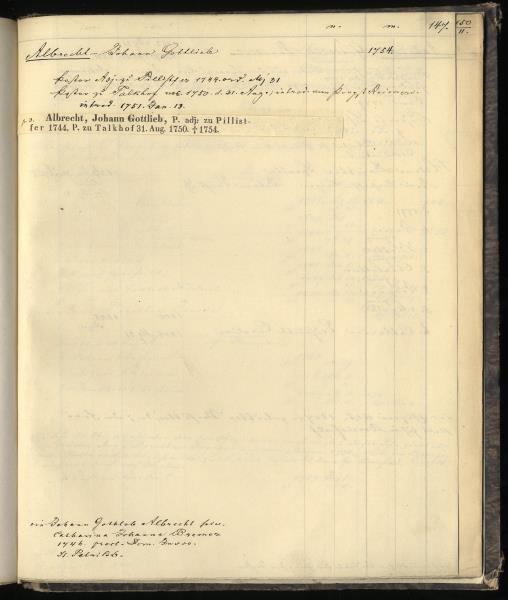 n. m. 147. 150
11.
Albrecht – Johann Gottlieb 1754.
Pastor Adj. zu Pillistfer 1744. ord. Maj 31
Pastor zu Talkhof voc. 1750. d. 31. Aug., introd. vom Propst
introd. 1751. Jan. 13.
Albrecht, Johann Gottlieb, P. adj. zu Pillist-
fer 1744, P. zu Talkhof 31. Aug. 1750. † 1754.
Johann Gottlob Albrecht
Catharina Johanna Bremer
1746. Dom.